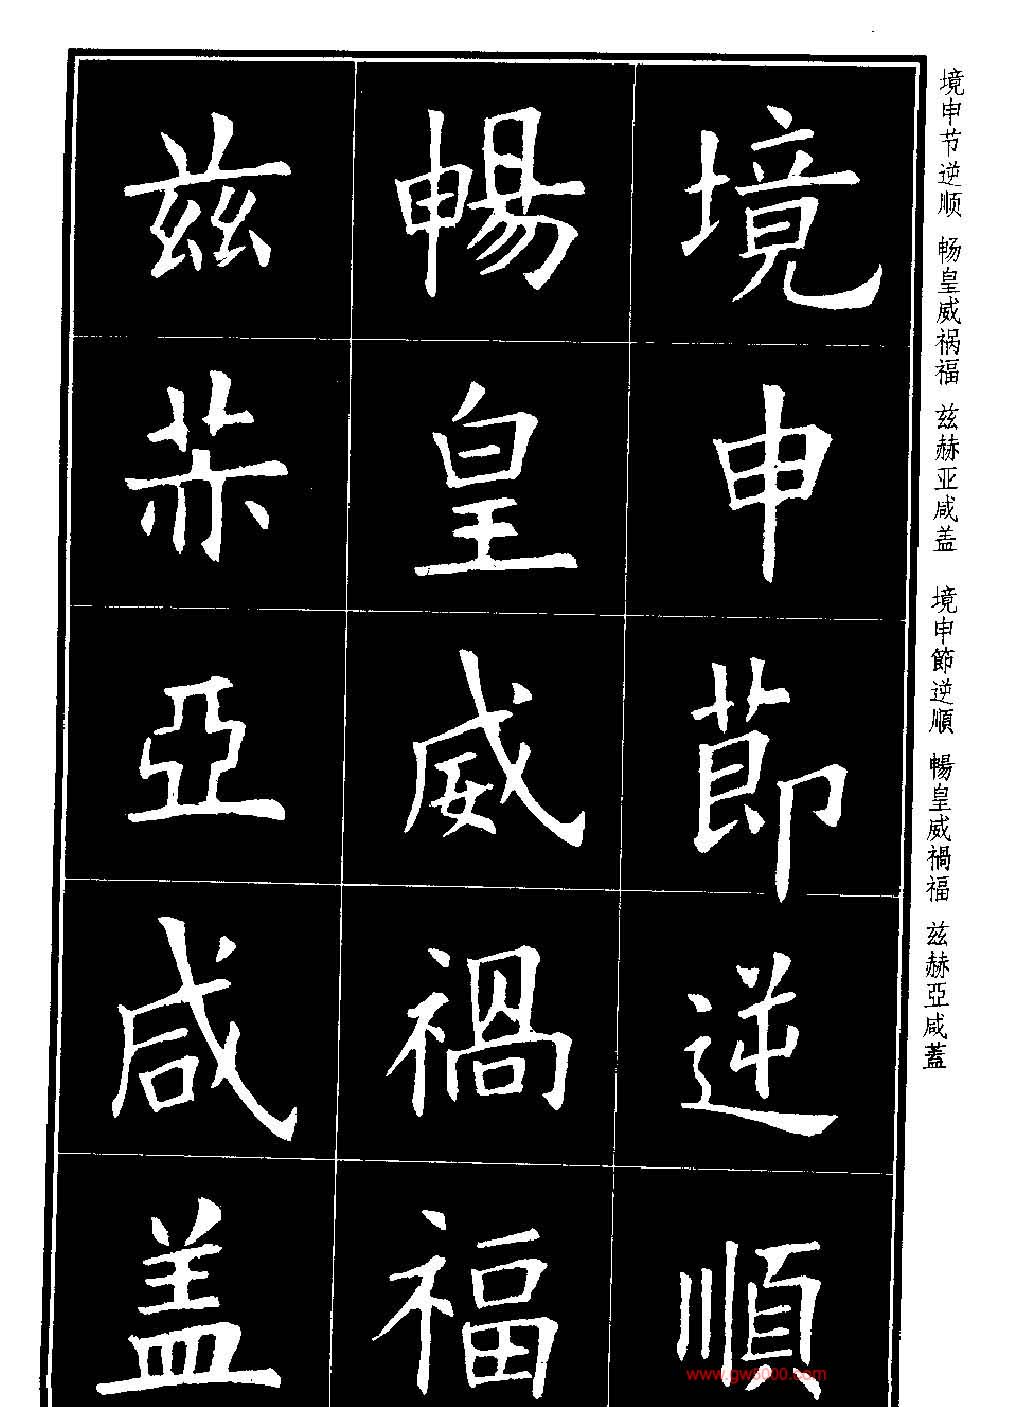 境申节逆顺 畅皇威祸福 兹赫亚咸盖 境申節逆順 暢皇威禍福 兹赫亞咸蓋
境申節逆順
暢皇威禍福
兹亞咸盖
www.gw5000.com